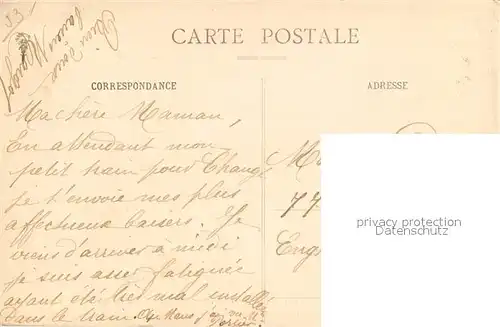 53
CARTE POSTALE
CORRESPONDANCE
ADRESSE
Ma chère Maman,
En attendant mon
petit train pour Changé
je t'envoie mes plus
affectueux baisers. Je
viens d'arriver à midi
je suis assez fatiguée
ayant été très mal installée
dans le train. Au Mans j'ai vu
77
Eng
privacy protection
Datenschutz